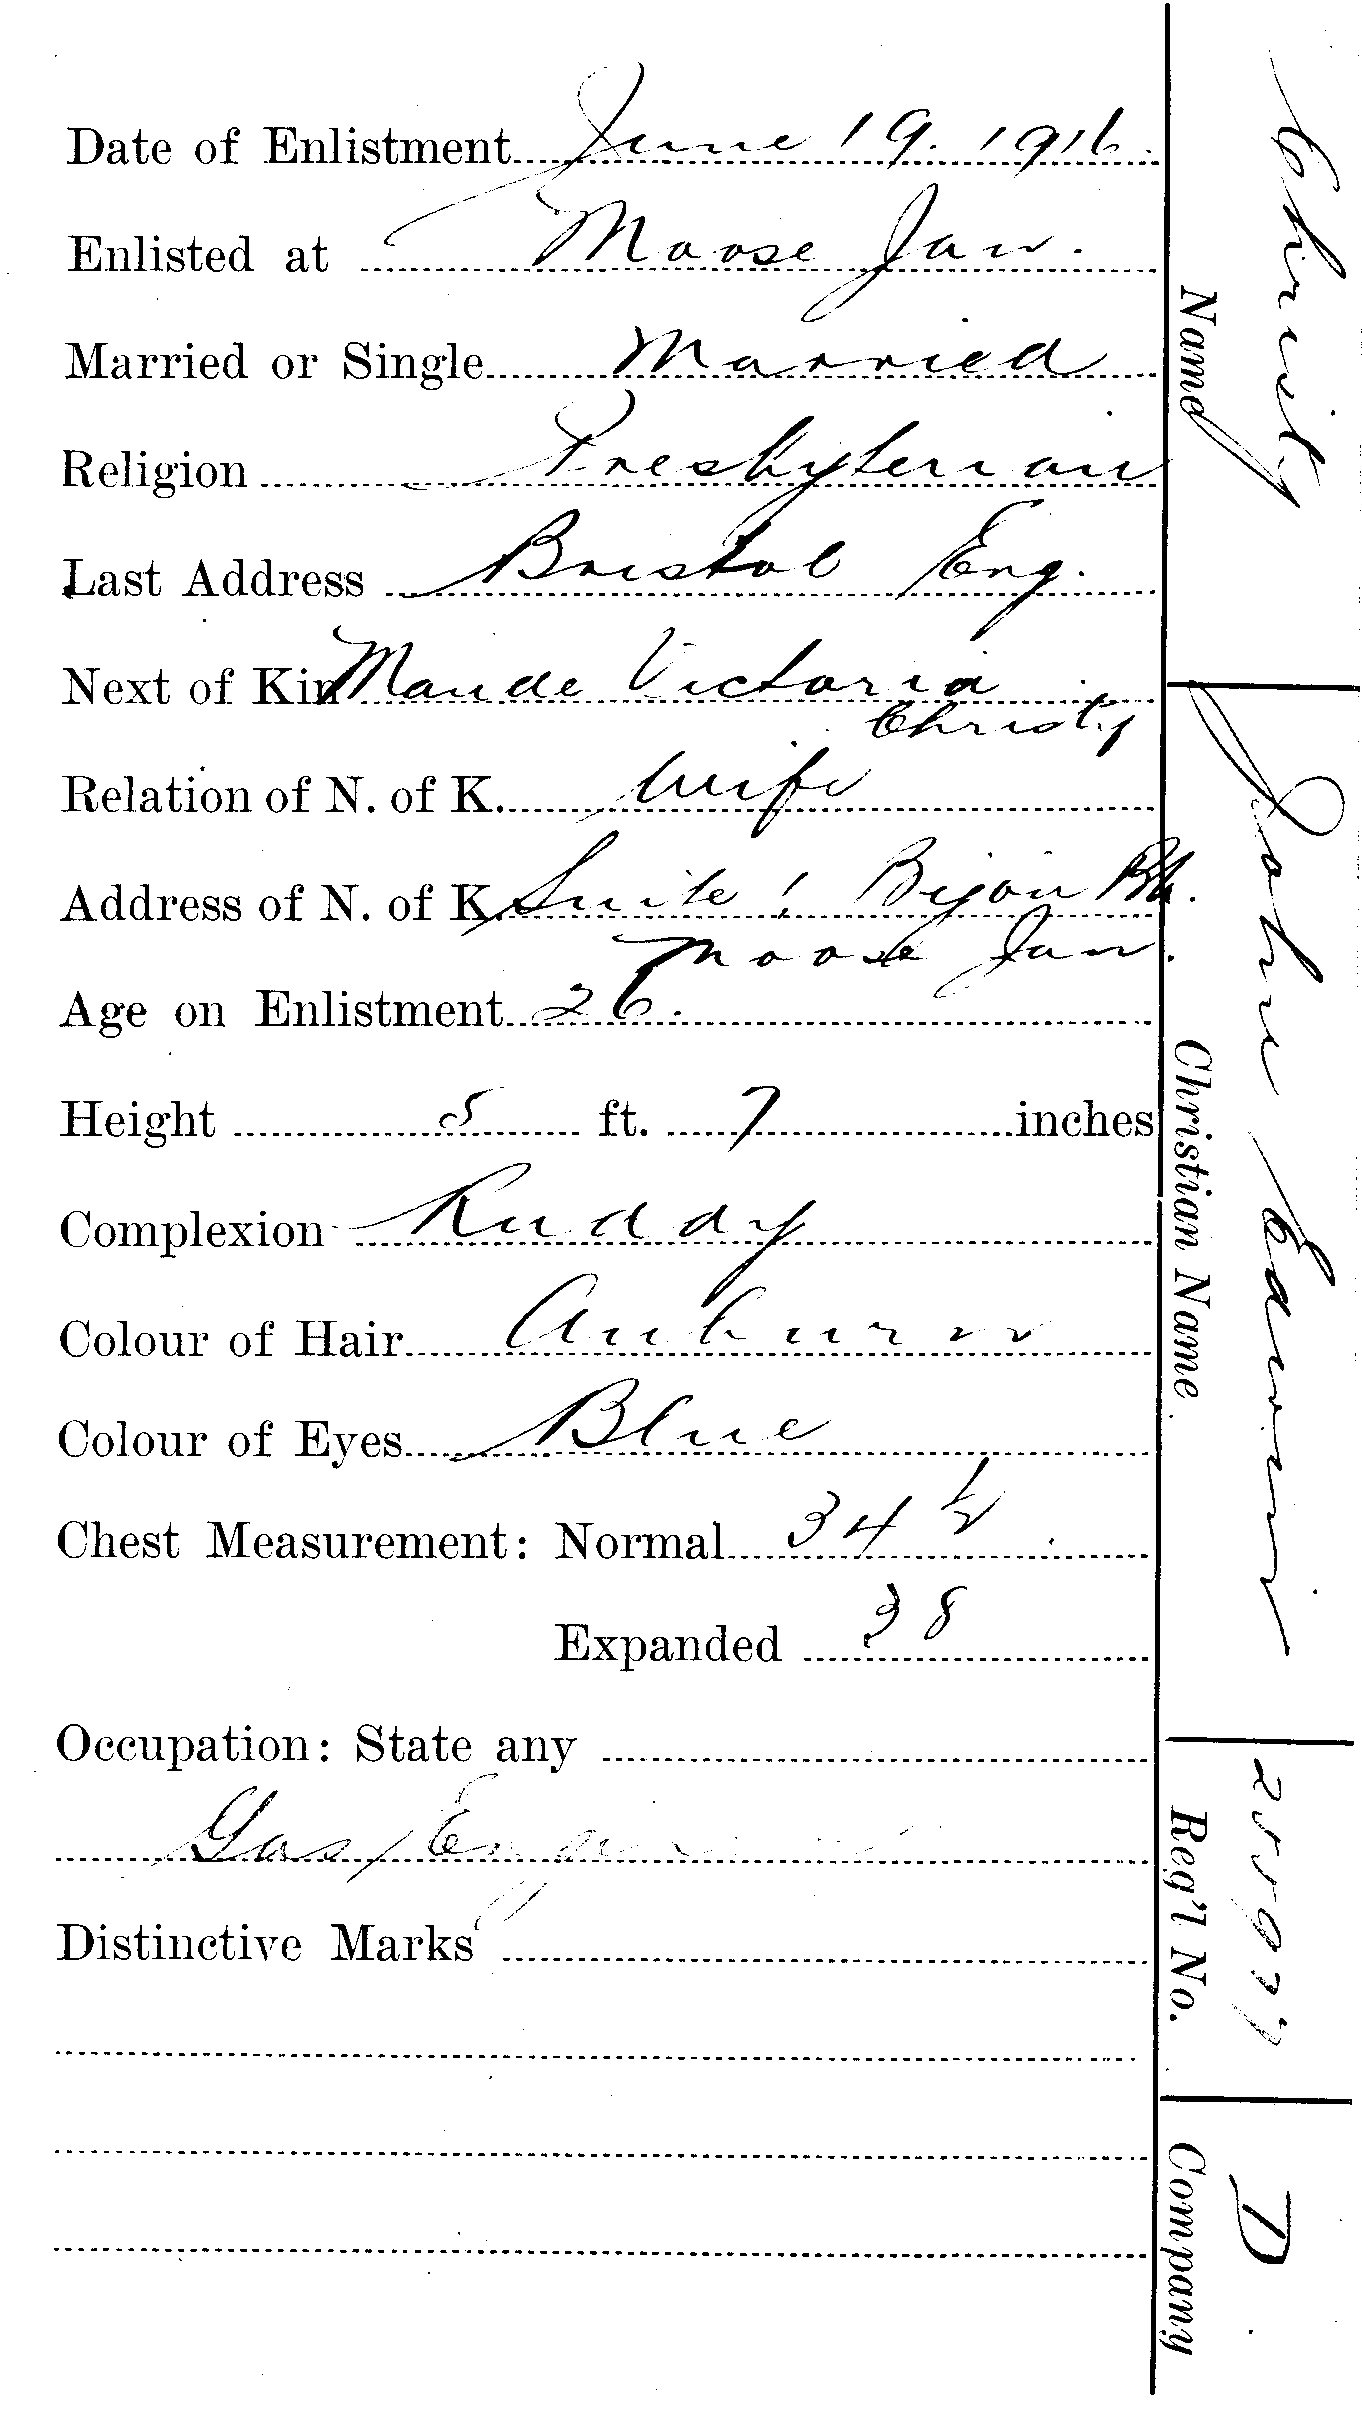 Date of Enlistment June 19. 1916.
Enlisted at Moose Jaw.
Married or Single Married
Religion Presbyterian
Last Address Bristol Eng.
Next of Kin Maude Victoria
Christy
Relation of N. of K. Wife
Address of N. of K. Suite 1 Bijou Blk.
Moose Jaw.
Age on Enlistment 26.
Height 5 ft. 7 inches
Complexion Ruddy
Colour of Hair Auburn
Colour of Eyes Blue
Chest Measurement: Normal 34 1/2
Expanded 38
Occupation: State any
Gas
Distinctive Marks
Name Christy
Christian Name John Edwin
Reg'l No. 255977
Company D